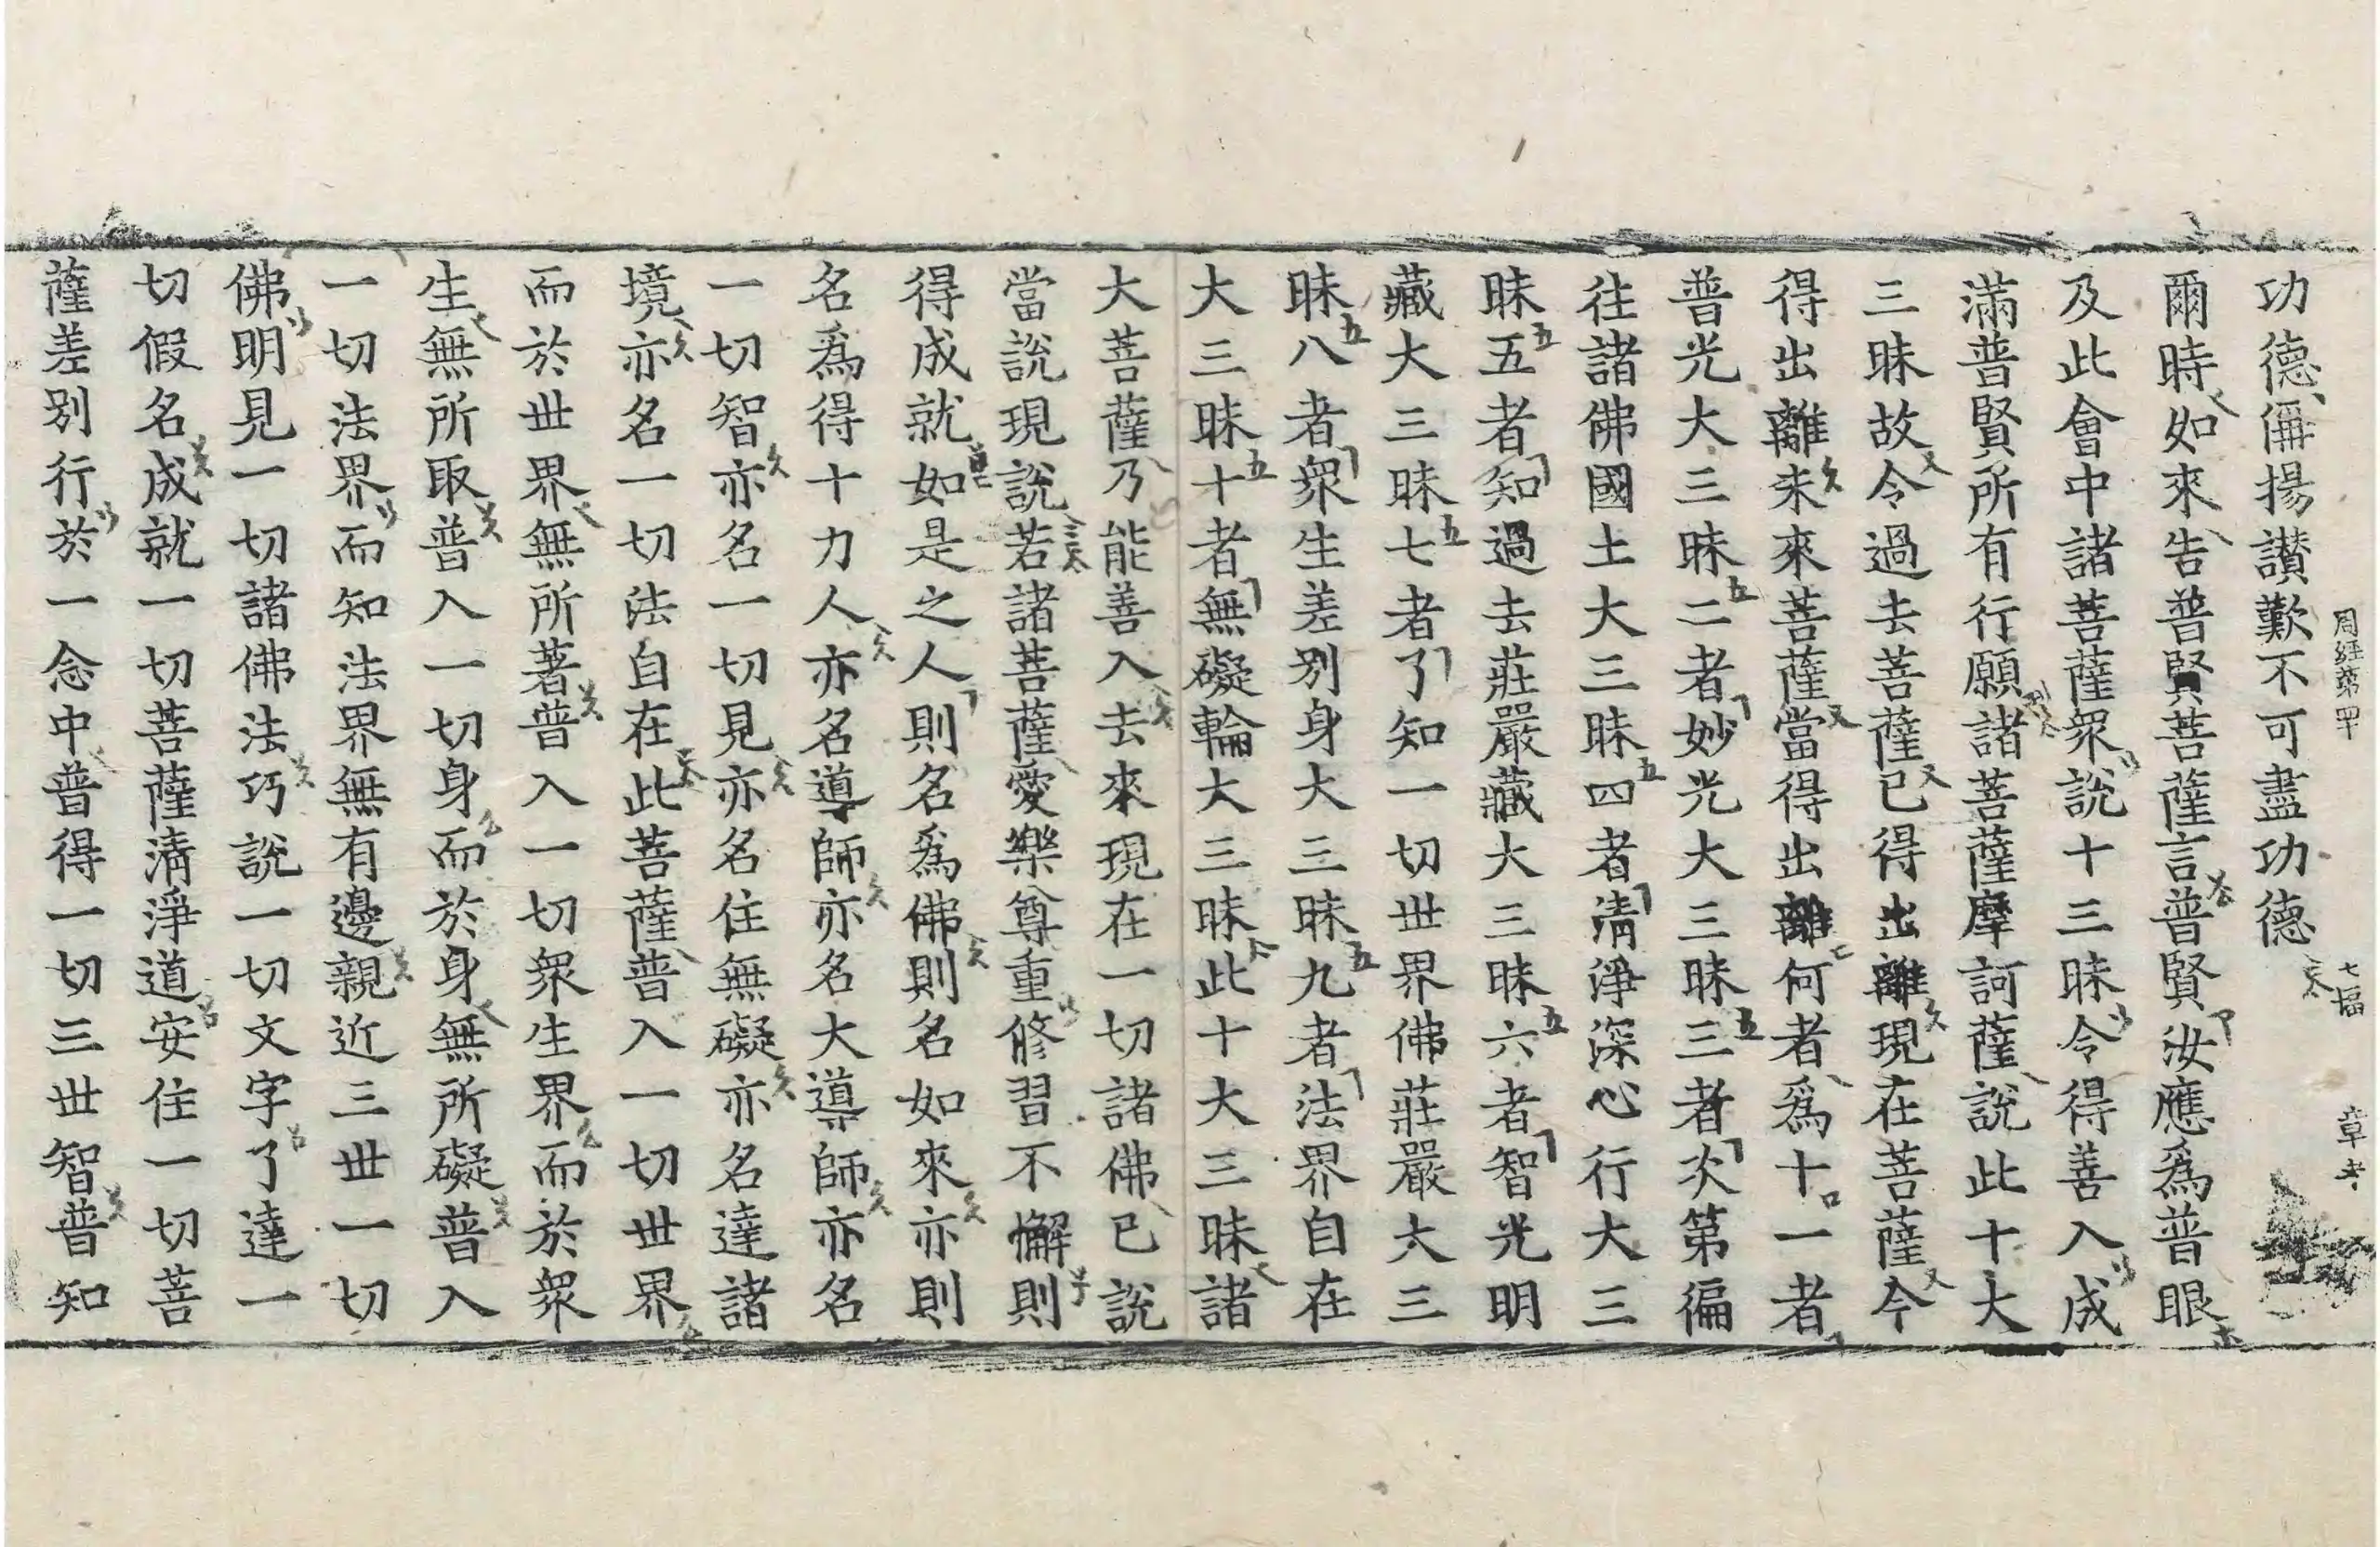 周経第四十 七幅 章孝
功德偁揚讃歎不可盡功德
爾時如來告普賢菩薩言普賢汝應爲普眼
及此會中諸菩薩衆說十三昧令得善入成
滿普賢所有行願諸菩薩摩訶薩說此十大
三昧故令過去菩薩已得出離現在菩薩今
得出離未來菩薩當得出離何者爲十一者
普光大三昧二者妙光大三昧三者次第徧
往諸佛國土大三昧四者清淨深心行大三
昧五者知過去莊嚴藏大三昧六者智光明
藏大三昧七者了知一切世界佛莊嚴大三
昧八者衆生差別身大三昧九者法界自在
大三昧十者無礙輪大三昧此十大三昧諸
大菩薩乃能善入去來現在一切諸佛已說
當說現說若諸菩薩愛樂尊重修習不懈則
得成就如是之人則名爲佛則名如來亦則
名爲得十力人亦名導師亦名大導師亦名
一切智亦名一切見亦名住無礙亦名達諸
境亦名一切法自在此菩薩普入一切世界
而於世界無所著普入一切衆生界而於衆
生無所取普入一切身而於身無所礙普入
一切法界而知法界無有邊親近三世一切
佛明見一切諸佛法巧說一切文字了達一
切假名成就一切菩薩清淨道安住一切菩
薩差別行於一念中普得一切三世智普知